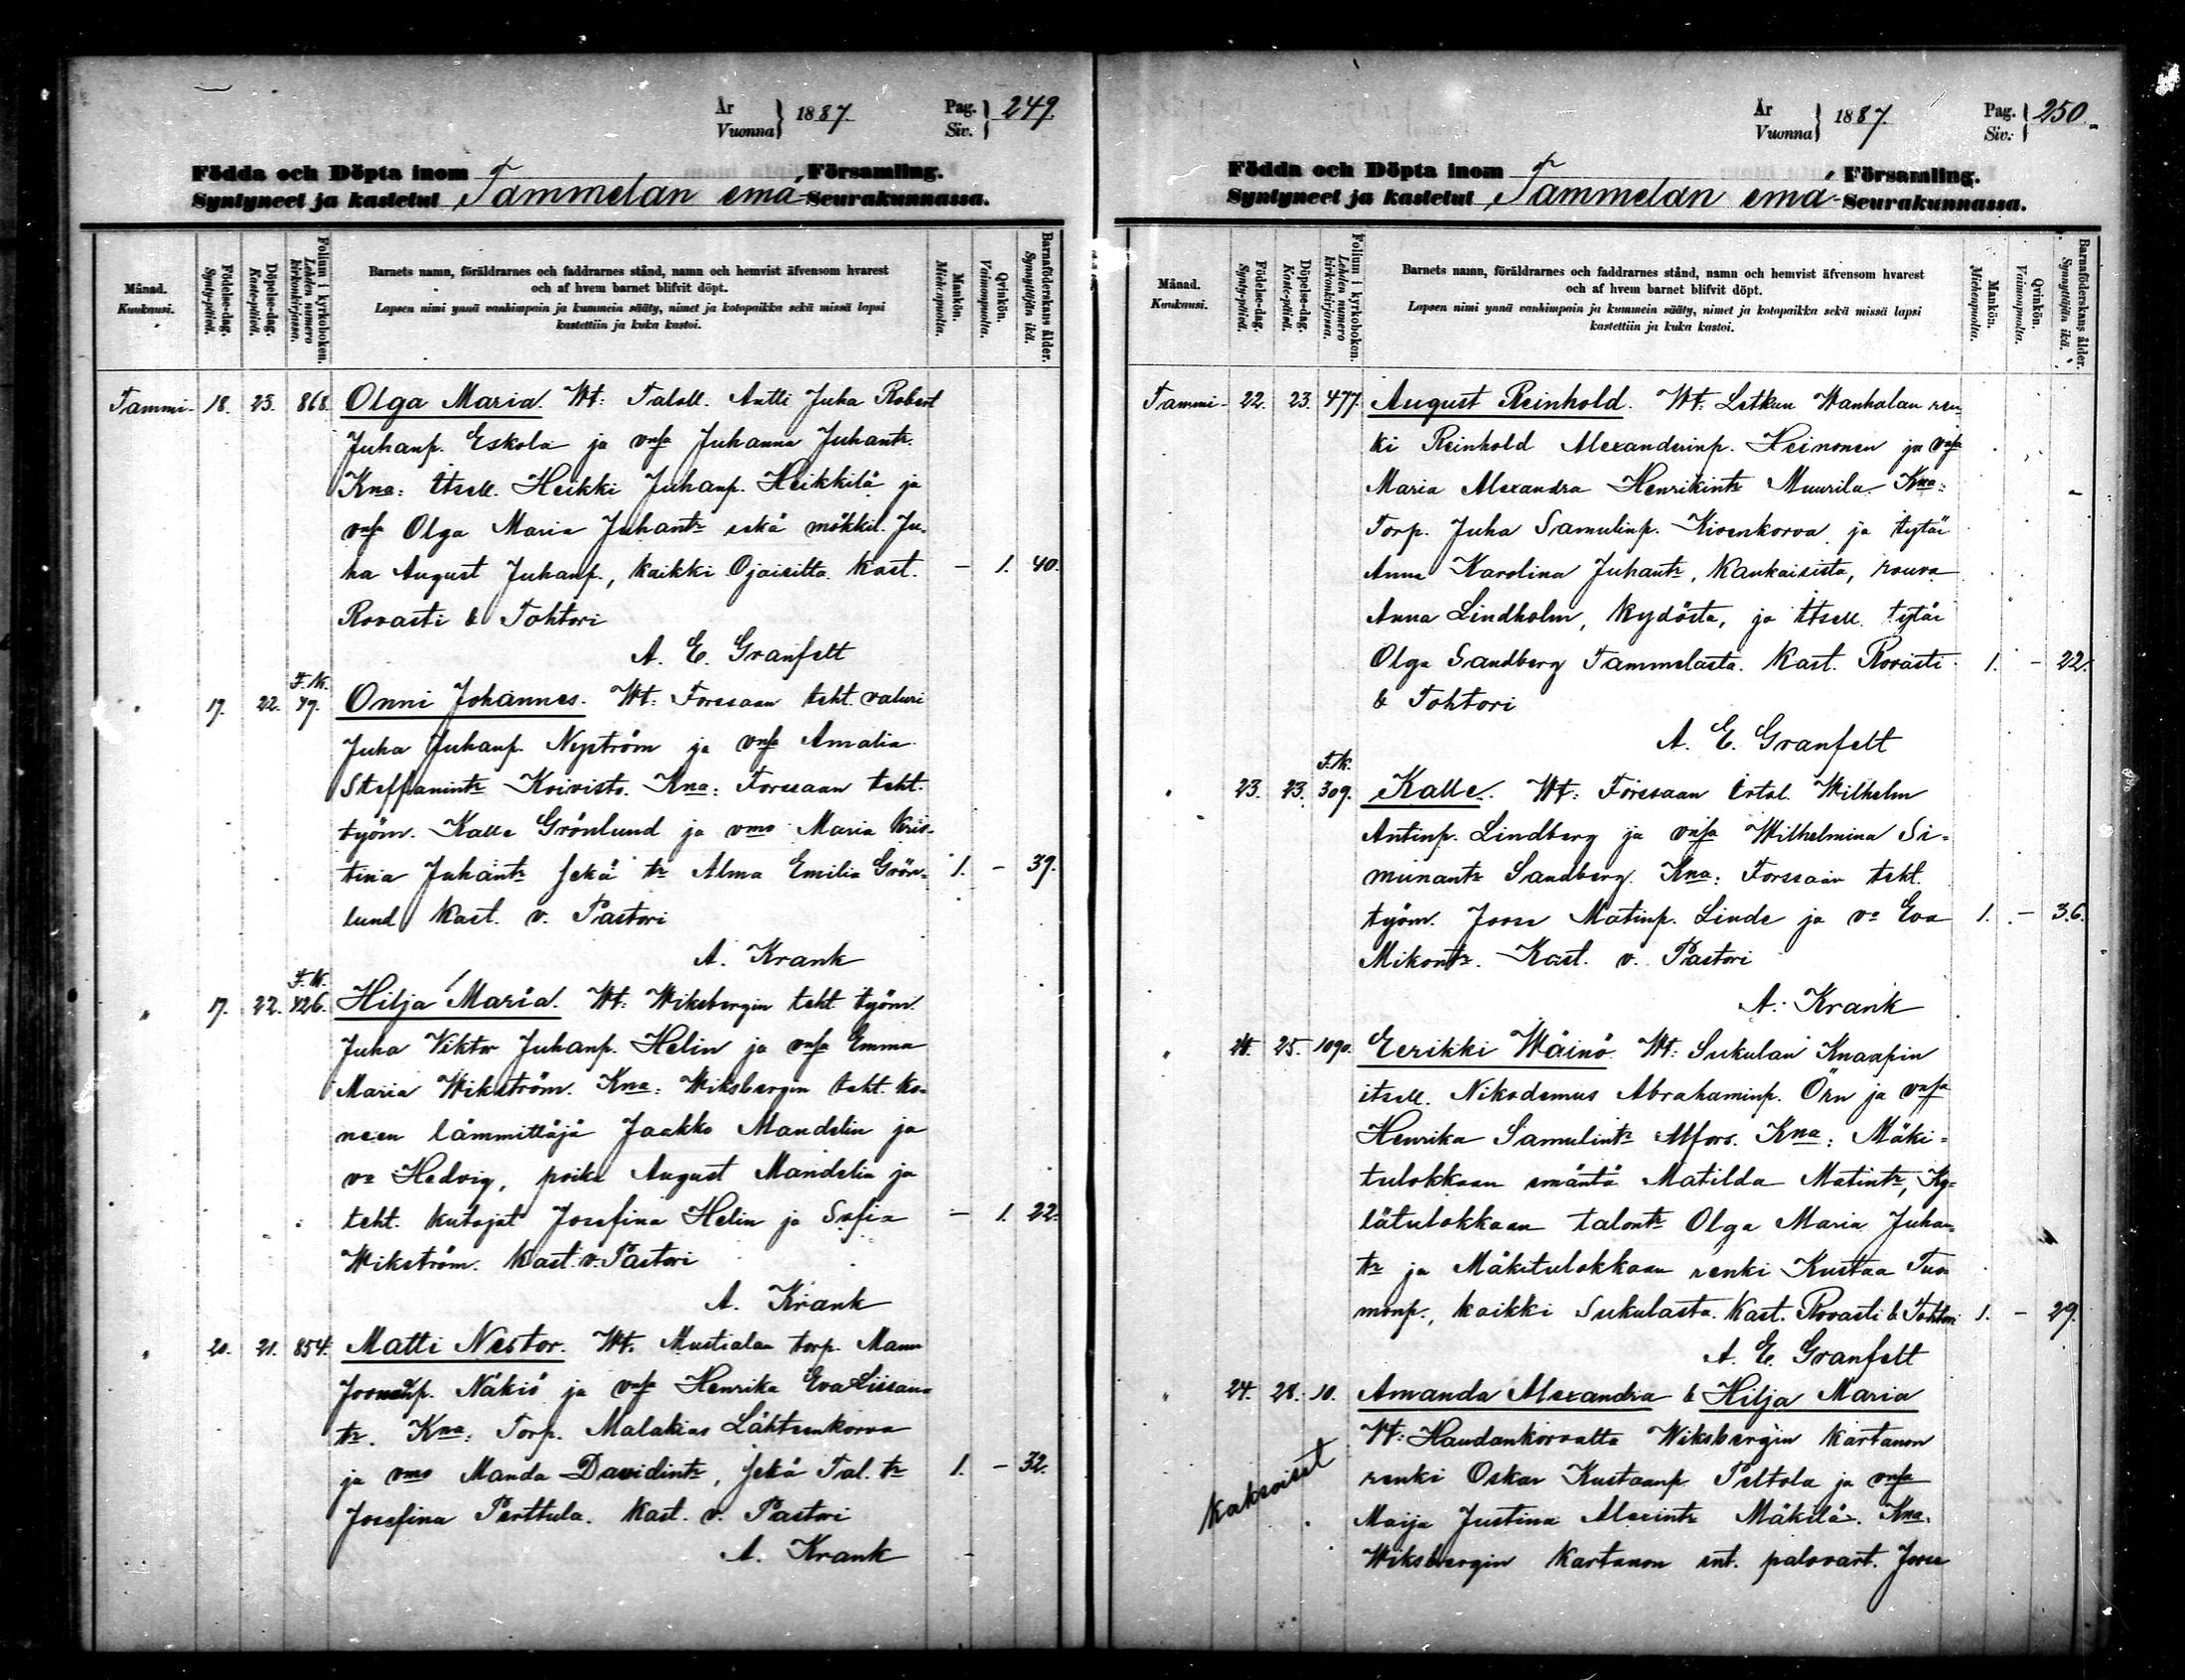 År
Vuonna } 1887. Pag.
Siv. } 249.
Födda och Döpta inom Församling.
Syntyneet ja kastetut Tammelan emä-Seurakunnassa.
Månad.
Kuukausi.
Födelse-dag.
Synty-päivä.
Döpelse-dag.
Kaste-päivä.
Folium i kyrkoboken.
Lehden numero
kirkonkirjassa.
Barnets namn, föräldrarnes och faddrarnes stånd, namn och hemvist äfvensom hvarest
och af hvem barnet blifvit döpt.
Lapsen nimi ynnä vanhimpain ja kummein sääty, nimet ja kotopaikka sekä missä lapsi
kastettiin ja kuka kastoi.
Mankön.
Miehenpuolta.
Qvinkön.
Vaimonpuolta.
Barnaföderskans ålder.
Synnyttäjän ikä.
Tammi- 18. 23. 868. Olga Maria. Wt: Taloll. Antti Juha Robert
Juhanp. Eskola ja vmsa Juhanna Juhantr.
Kna: Itsell. Heikki Juhanp. Heikkilä ja
vmsa Olga Maria Juhantr sekä mökkil. Ju-
ha August Juhanp., kaikki Ojaisilta. Kast. — 1. 40.
Rovasti & Tohtori
A. E. Granfelt
F. K.
" 19. 22. 49. Onni Johannes. Wt: Forssaan teht. valuri
Juha Juhanp. Nyström ja vmsa Amalia
Steffanintr Koivisto. Kna: Forssaan teht.
työm. Kalle Grönlund ja vmo Maria Kris-
tina Juhantr sekä tr Alma Emilia Grön- 1. — 39.
lund Kast. v. Pastori
A. Krank
F. K.
" 17. 22. 426. Hilja Maria. Wt: Wiksbergin teht. työm.
Juha Viktor Juhanp. Helin ja vmsa Emma
Maria Wikström. Kna: Wiksbergin teht. ko-
neen lämmittäjä Jaakko Mandelin ja
vo Hedvig, poika August Mandelin ja
teht. kutojat Josefina Helin ja Sofia — 1. 22.
Wikström. Kast. v. Pastori
A. Krank
" 20. 21. 854. Matti Nestor. Wt: Mustialan torp. Manu
Joonanp. Näkiö ja vmsa Henrika Eva Liisan-
tr. Kna: Torp. Malakias Lähteenkorva
ja vmo Manda Davidintr, sekä Tal. tr 1. — 32.
Josefina Perttula. Kast. v. Pastori
A. Krank
År
Vuonna } 1887. Pag.
Siv. } 250.
Födda och Döpta inom Församling.
Syntyneet ja kastetut Tammelan emä-Seurakunnassa.
Månad.
Kuukausi.
Födelse-dag.
Synty-päivä.
Döpelse-dag.
Kaste-päivä.
Folium i kyrkoboken.
Lehden numero
kirkonkirjassa.
Barnets namn, föräldrarnes och faddrarnes stånd, namn och hemvist äfvensom hvarest
och af hvem barnet blifvit döpt.
Lapsen nimi ynnä vanhimpain ja kummein sääty, nimet ja kotopaikka sekä missä lapsi
kastettiin ja kuka kastoi.
Mankön.
Miehenpuolta.
Qvinkön.
Vaimonpuolta.
Barnaföderskans ålder.
Synnyttäjän ikä.
Tammi- 22. 23. 477. August Reinhold. Wt: Letkun Wanhalan ren-
ki Reinhold Alexanderinp. Heinonen ja vmsa
Maria Alexandra Henrikintr Muurila. Kna:
Torp. Juha Samulinp. Kivenkorva ja tytär
Anna Karolina Juhantr, Kankaisista, rouva
Anna Lindholm, Kydöstä, ja itsell. tytär
Olga Sandberg Tammelasta. Kast. Rovasti 1. — 22.
& Tohtori
A. E. Granfelt
F. K.
" 23. 23. 309. Kalle. Wt: Forssaan Irtol. Wilhelm
Antinp. Lindberg ja vmsa Wilhelmina Si-
munantr Sandberg. Kna: Forssaan teht.
työm. Joose Matinp. Linde ja vo Eva 1. — 36.
Mikontr. Kast. v. Pastori
A. Krank
" 25. 1090. Eerikki Wäinö. Wt: Sukulan Knaapin
itsell. Nikodemus Abrahaminp. Örn ja vmsa
Henrika Samulintr Alfors. Kna: Mäki-
tulokkaan emäntä Matilda Matintr, Ky-
lätulokkaan talontr Olga Maria Juhan-
tr ja Mäkitulokkaan renki Kustaa Tuo-
monp., kaikki Sukulasta. Kast. Rovasti & Tohtori 1. — 29.
A. E. Granfelt
" 24. 28. 10. Amanda Alexandra & Hilja Maria
Wt: Haudankorvalta Wiksbergin kartanon
kaksoiset renki Oskar Kustaanp. Peltola ja vmsa
Maija Justina Alexintr Mäkilä. Kna:
Wiksbergin Kartanon ent. palovart. Joose